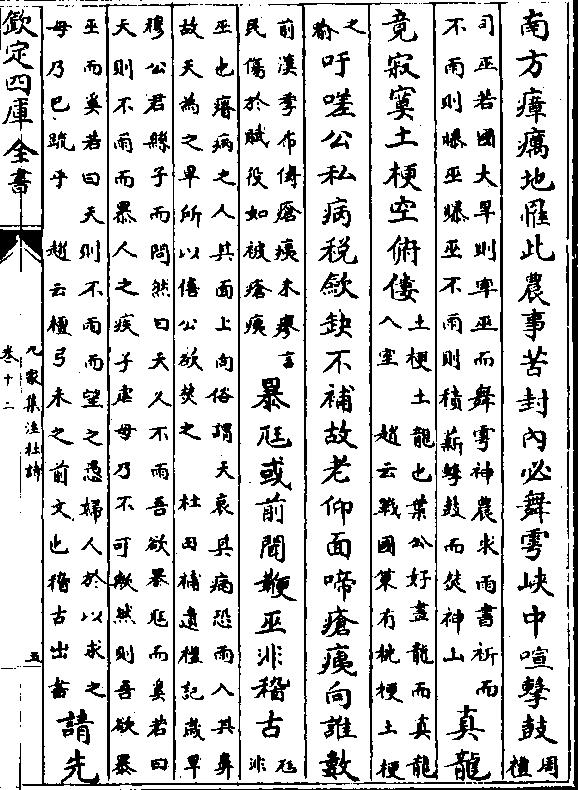 南方瘴癘地罹此農事苦封內必舞雩峽中喧擊鼓周禮
司巫若國大旱則率巫而舞雩神農求雨書祈而
不雨則曝巫曝巫不雨則積薪擊鼓而焚神山
真龍
竟寂寞土梗空俯僂
土梗土龍也葉公好畫龍而真龍
入室 趙云戰國策有桃梗土梗
之喻
吁嗟公私病稅斂缺不補故老仰面啼瘡痍向誰數
前漢季布傳瘡痍未瘳言
民傷於賦役如被瘡痍
暴尫或前聞鞭巫非稽古
尫
非
巫也瘠病之人其面上向俗謂天哀其病恐雨入其鼻
故天為之旱所以僖公欲焚之 杜田補遺禮記歲旱
穆公君縣子而問然曰天久不雨吾欲暴尫而奚若曰
天則不雨而暴人之疾子虐毋乃不可歟然則吾欲暴
巫而奚若曰天則不雨而望之愚婦人於以求之
毋乃已疏乎 趙云檀弓未之前文也稽古出書
請先
欽定四庫全書
九家集注杜詩
卷十二
五